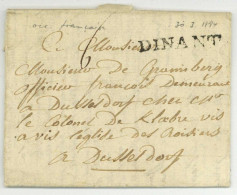 occ francaise 30.3.1794
A Monsieur
DINANT
Monsieur De Gramsberg
officier françois Demeurant
a Dusseldorf chez Mr
le Colonel de Klebre vis
a vis l'eglise des Croisiers
a Dusseldorf